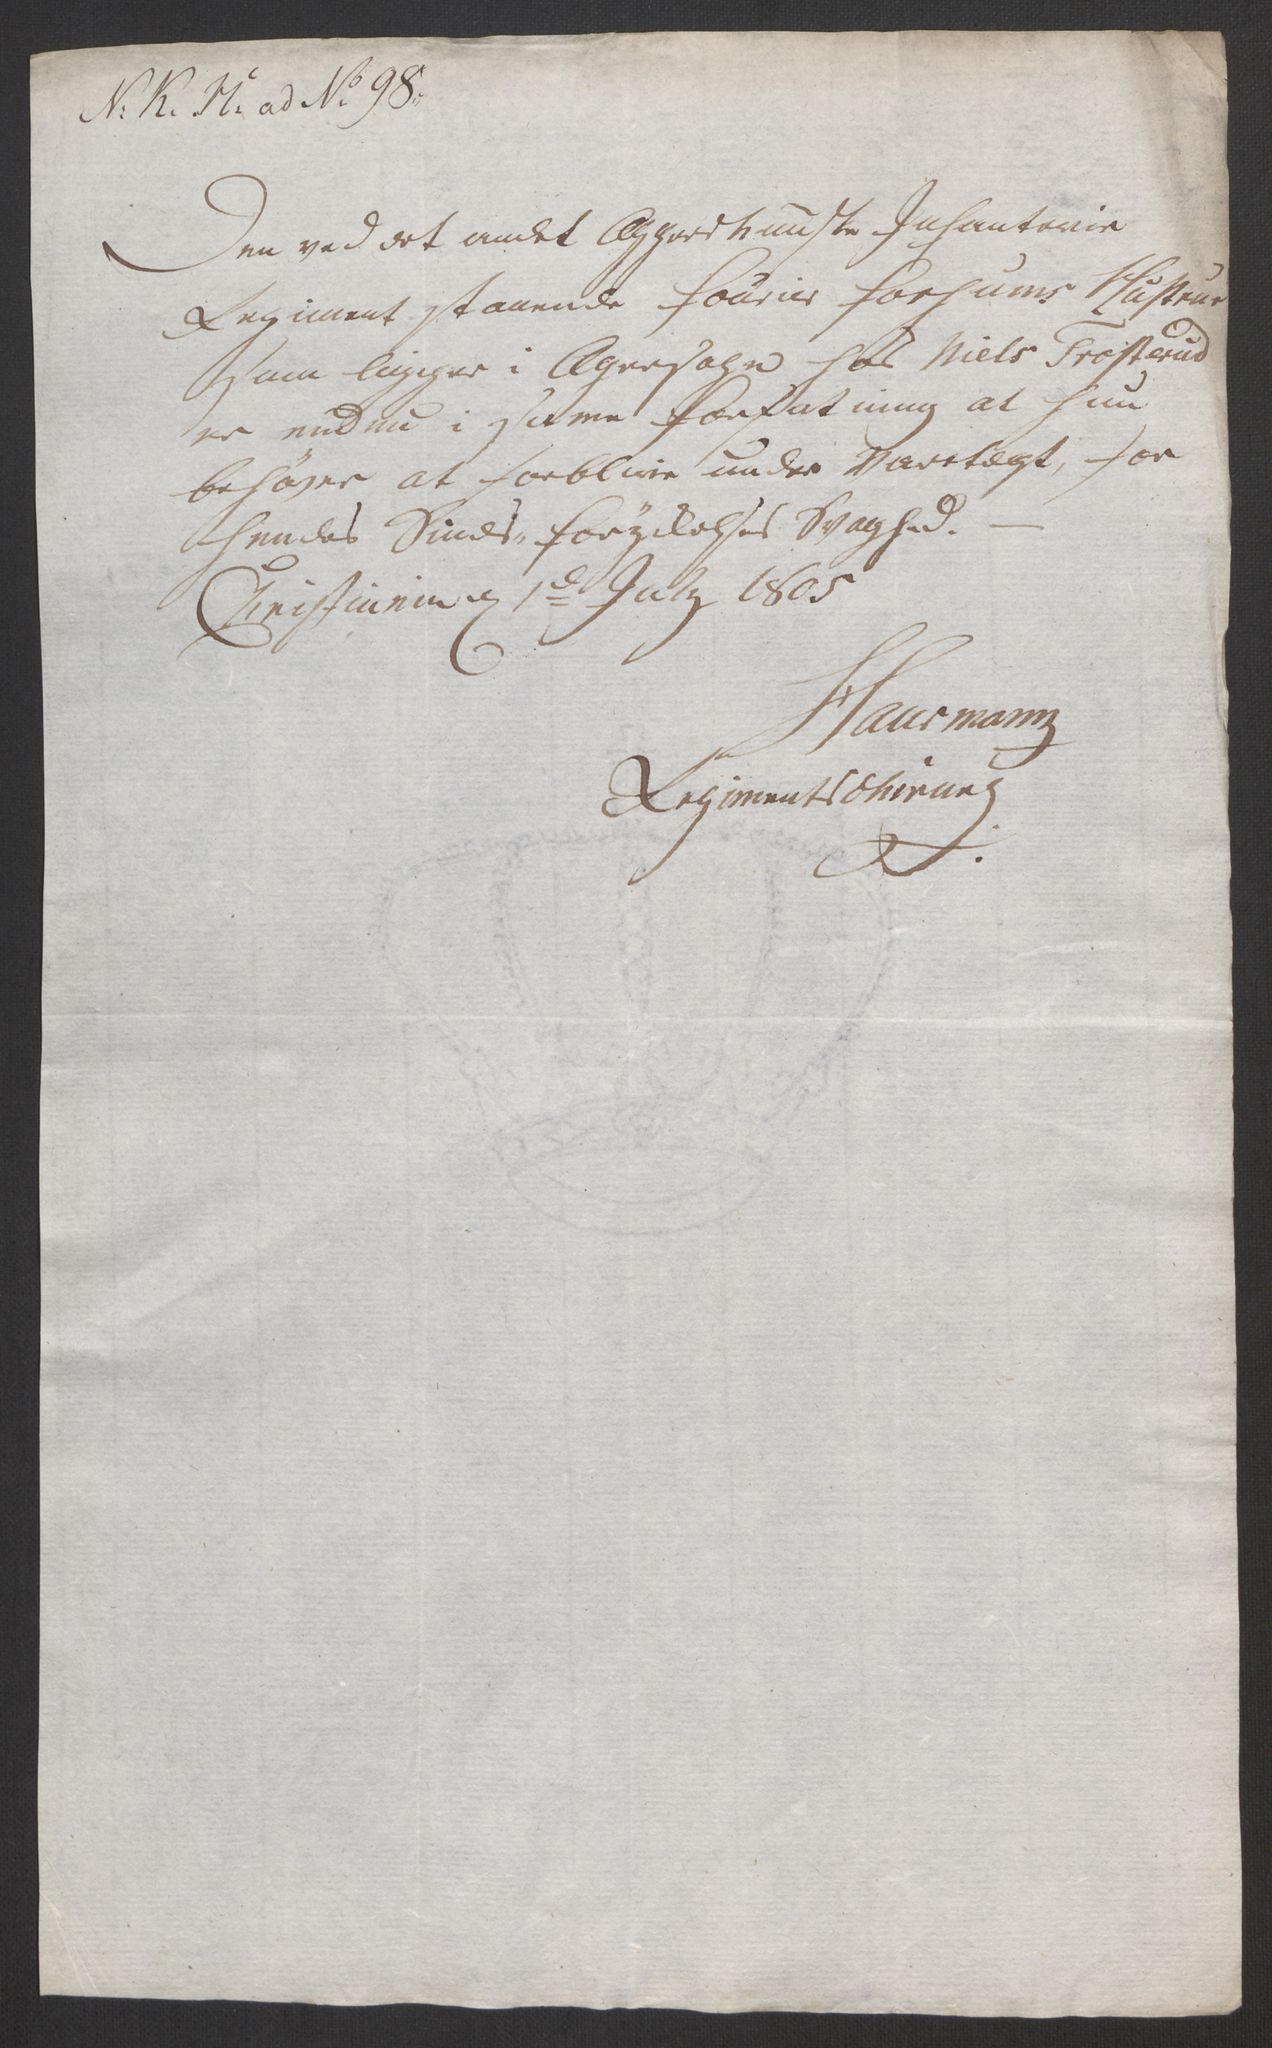 N: K. N: ad No 98.
Den ved det andet Aggershuusske Infanterie
Regiment staaende Fourier Forhums Hustrue
som ligger i Agersogn hos Niels Frösterud
er endnu i samme Forfatning at hun
behøver at forblive under Varetægt, for
hendes Sinds-forrykkelses Svaghed. —
Christiania 1d July 1805
Hausmann
Regimentschirurg